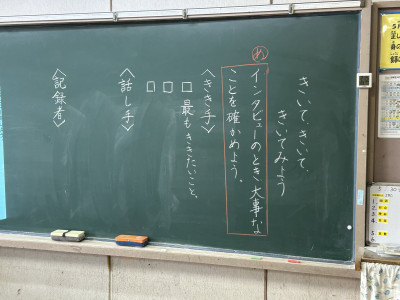 きいて、きいて、
きいてみよう
め
インタビューのとき大事な
ことを確かめよう。
〈きき手〉
□最もききたいこと。
□
□
〈話し手〉
〈記録者〉